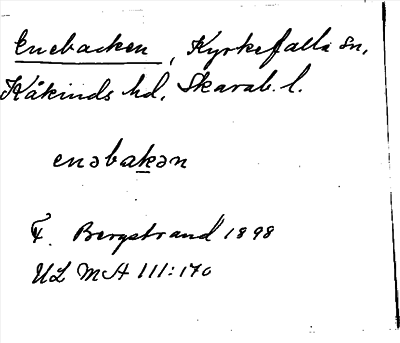 Enebacken, Kyrkefalla sn,
Kåkinds hd, Skarab. l.
enəbakən
F. Bergstrand 1898
UL MA III:170